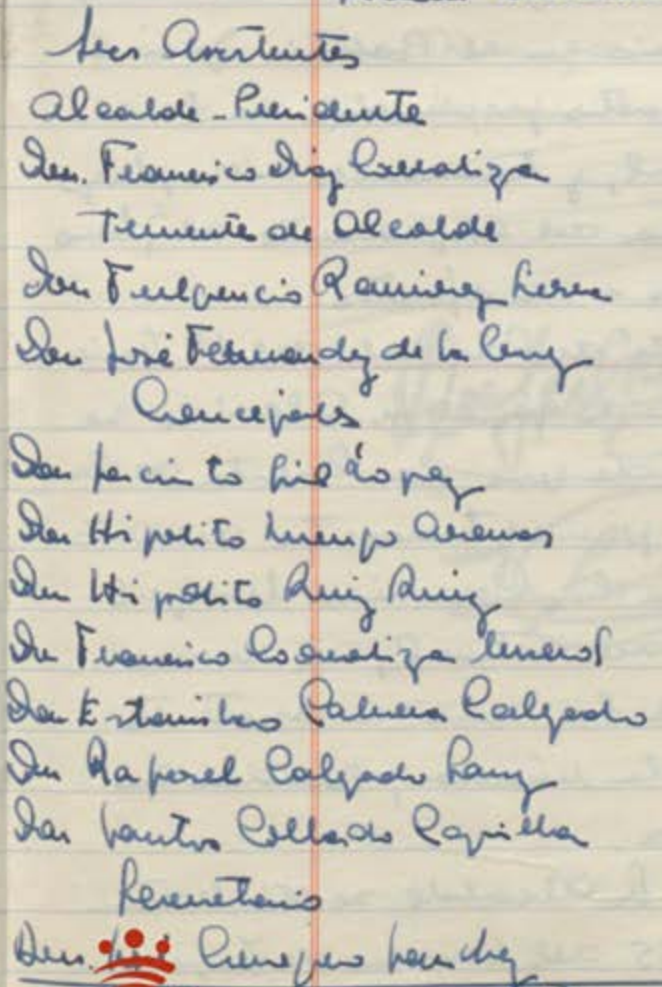 Sres Asistentes
Alcalde-Presidente
Don. Francisco Diaz
Teniente de Alcalde
Don Fulgencio Ramirez
Don José Fernandez de la Cruz
Concejales
Don Jacinto Gil Lopez
Don Hipolito Luengo Arenas
Don Hipólito Ruiz Ruiz
Don Francisco
Don Estanislao Cabrera Calzado
Don Rafael Calzado Sanz
Don Santos Collado Capilla
Secretario
Don. Sanchez